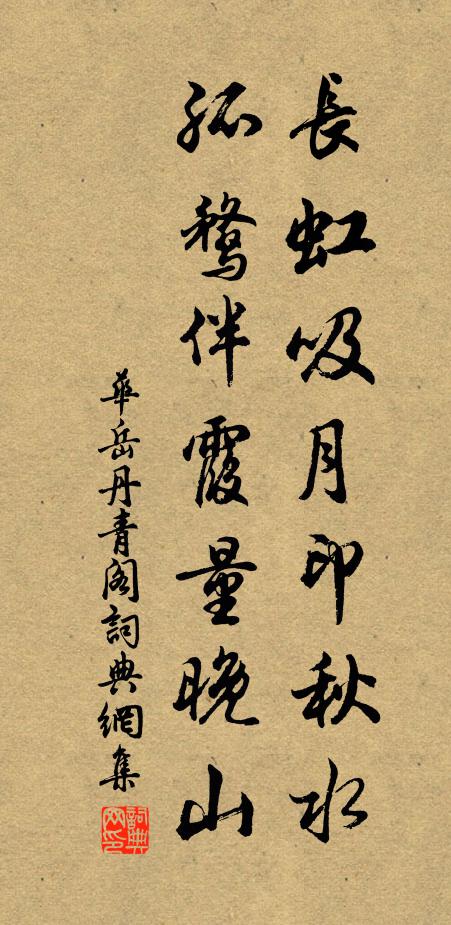 長虹吸月印秋水
孤鶩伴霞量晚山
華岳丹青閣詞典網集
詞典
网印